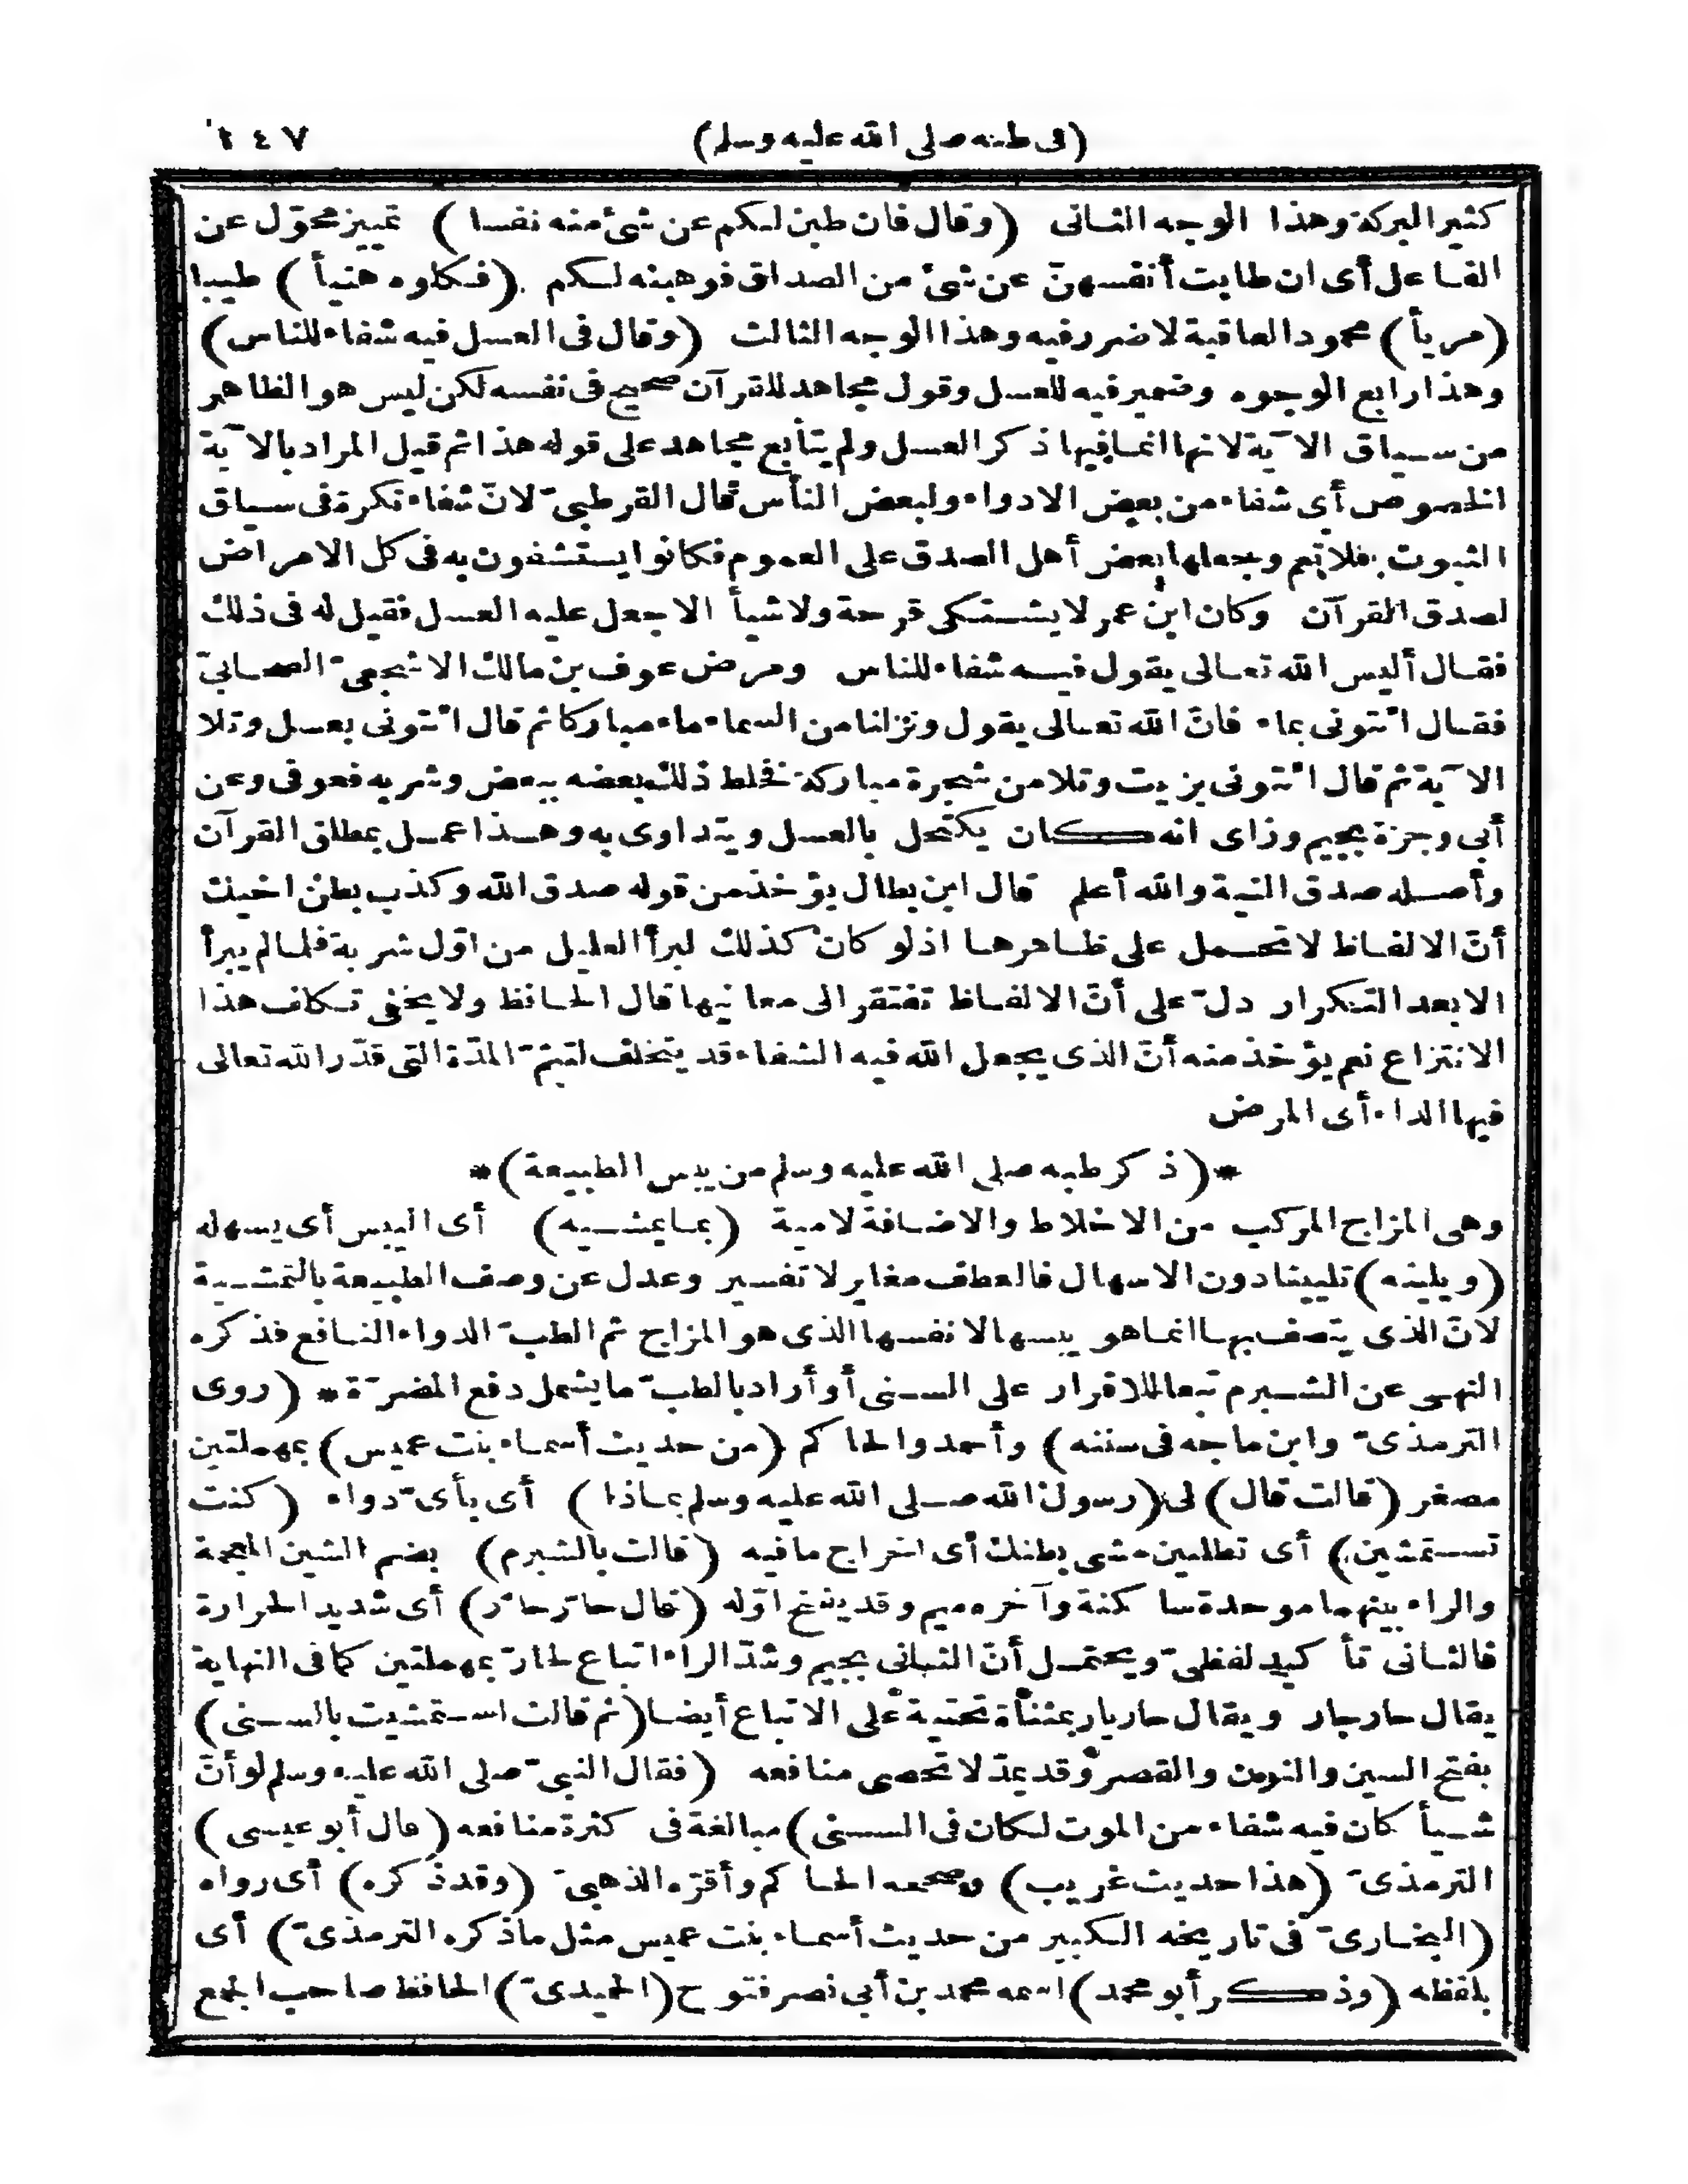 (فى طبه صلى الله عليه وسلم) ١٤٧
كثير البركة وهذا الوجه الثانى (وقال فان طبن لكم عن شئ منه نفسا) تمييز محوّل عن
الفاعل أى ان طابت أنفسهنّ عن شئ من الصداق فوهبنه لكم (فكلوه هنيأ) طيبا
(مريأ) محمود العاقبة لا ضرر فيه وهذا الوجه الثالث (وقال فى العسل فيه شفاء للناس)
وهذا رابع الوجوه وضمير فيه للعسل وقول مجاهد للقرآن صحيح فى نفسه لكن ليس هو الظاهر
من سياق الآية لانها انما فيها ذكر العسل ولم يتابع مجاهد على قوله هذا ثم قيل المراد بالآية
الخصوص أى شفاء من بعض الادواء ولبعض الناس قال القرطبىّ لانّ شفاء نكرة فى سياق
الثبوت فلا تعم وجعلها بعض أهل الصدق على العموم فكانوا يستشفون به فى كل الامراض
لصدق القرآن وكان ابن عمر لا يشتكى قرحة ولا شيأ الا جعل عليه العسل فقيل له فى ذلك
فقال أليس الله تعالى يقول فيه شفاء للناس ومرض عوف بن مالك الاشجعىّ الصحابىّ
فقال ائتونى بماء فانّ الله تعالى يقول ونزلنا من السماء ماء مباركا ثم قال ائتونى بعسل وتلا
الآية ثم قال ائتونى بزيت وتلا من شجرة مباركة فخلط ذلك بعضه ببعض وشربه فعوفى وعن
أبى وجزة بجيم وزاى انه كان يكتحل بالعسل ويتداوى به وهذا عمل بمطلق القرآن
وأصله صدق النية والله أعلم قال ابن بطال يؤخذ من قوله صدق الله وكذب بطن اخيك
أنّ الالفاظ لا تحمل على ظاهرها اذ لو كان كذلك لبرأ العليل من اوّل شربة فلما لم يبرأ
الا بعد التكرار دلّ على أنّ الالفاظ تفتقر الى معانيها قال الحافظ ولا يخفى تكلف هذا
الانتزاع نعم يؤخذ منه أنّ الذى يجعل الله فيه الشفاء قد يتخلف لتتمّ المدّة التى قدّر الله تعالى
فيها الداء أى المرض
*(ذكر طبه صلى الله عليه وسلم من يبس الطبيعة)*
وهى المزاج المركب من الاخلاط والاضافة لامية (بما يمشيه) أى اليبس أى يسهله
(ويلينه) تليينا دون الاسهال فالعطف مغاير لا تفسير وعدل عن وصف الطبيعة بالتمشية
لانّ الذى يتصف بها انما هو يبسها لا نفسها الذى هو المزاج ثم الطبّ الدواء النافع فذكره
النهى عن الشبرم تبعا للاقرار على السنى أو أراد بالطبّ ما يشمل دفع المضرّة* (روى
الترمذىّ وابن ماجه فى سننه) وأحمد والحاكم (من حديث أسماء بنت عميس) بمهملتين
مصغر (قالت قال) لى (رسول الله صلى الله عليه وسلم بماذا) أى بأىّ دواء (كنت
تستمشين) أى تطلبين مشى بطنك أى اخراج ما فيه (قالت بالشبرم) بضم الشين المعجمة
والراء بينهما موحدة ساكنة وآخره ميم وقد يفتح اوّله (قال حارّ حارّ) أى شديد الحرارة
فالثانى تأكيد لفظىّ ويحتمل أنّ الثانى بجيم وشدّ الراء اتباع لحارّ بمهملتين كما فى النهاية
يقال حار جار ويقال حار يار بمثناة تحتية على الاتباع أيضا (ثم قالت استمشيت بالسنى)
بفتح السين والنون والقصر وقد يمدّ لا تحصى منافعه (فقال النبىّ صلى الله عليه وسلم لو أنّ
شيأ كان فيه شفاء من الموت لكان فى السنى) مبالغة فى كثرة منافعه (قال أبو عيسى)
الترمذىّ (هذا حديث غريب) وصححه الحاكم وأقرّه الذهبىّ (وقد ذكره) أى رواه
(البخارىّ فى تاريخه الكبير من حديث أسماء بنت عميس مثل ما ذكره الترمذىّ) أى
بلفظه (وذكر أبو محمد) اسمه محمد بن أبى نصر فتوح (الحميدىّ) الحافظ صاحب الجمع